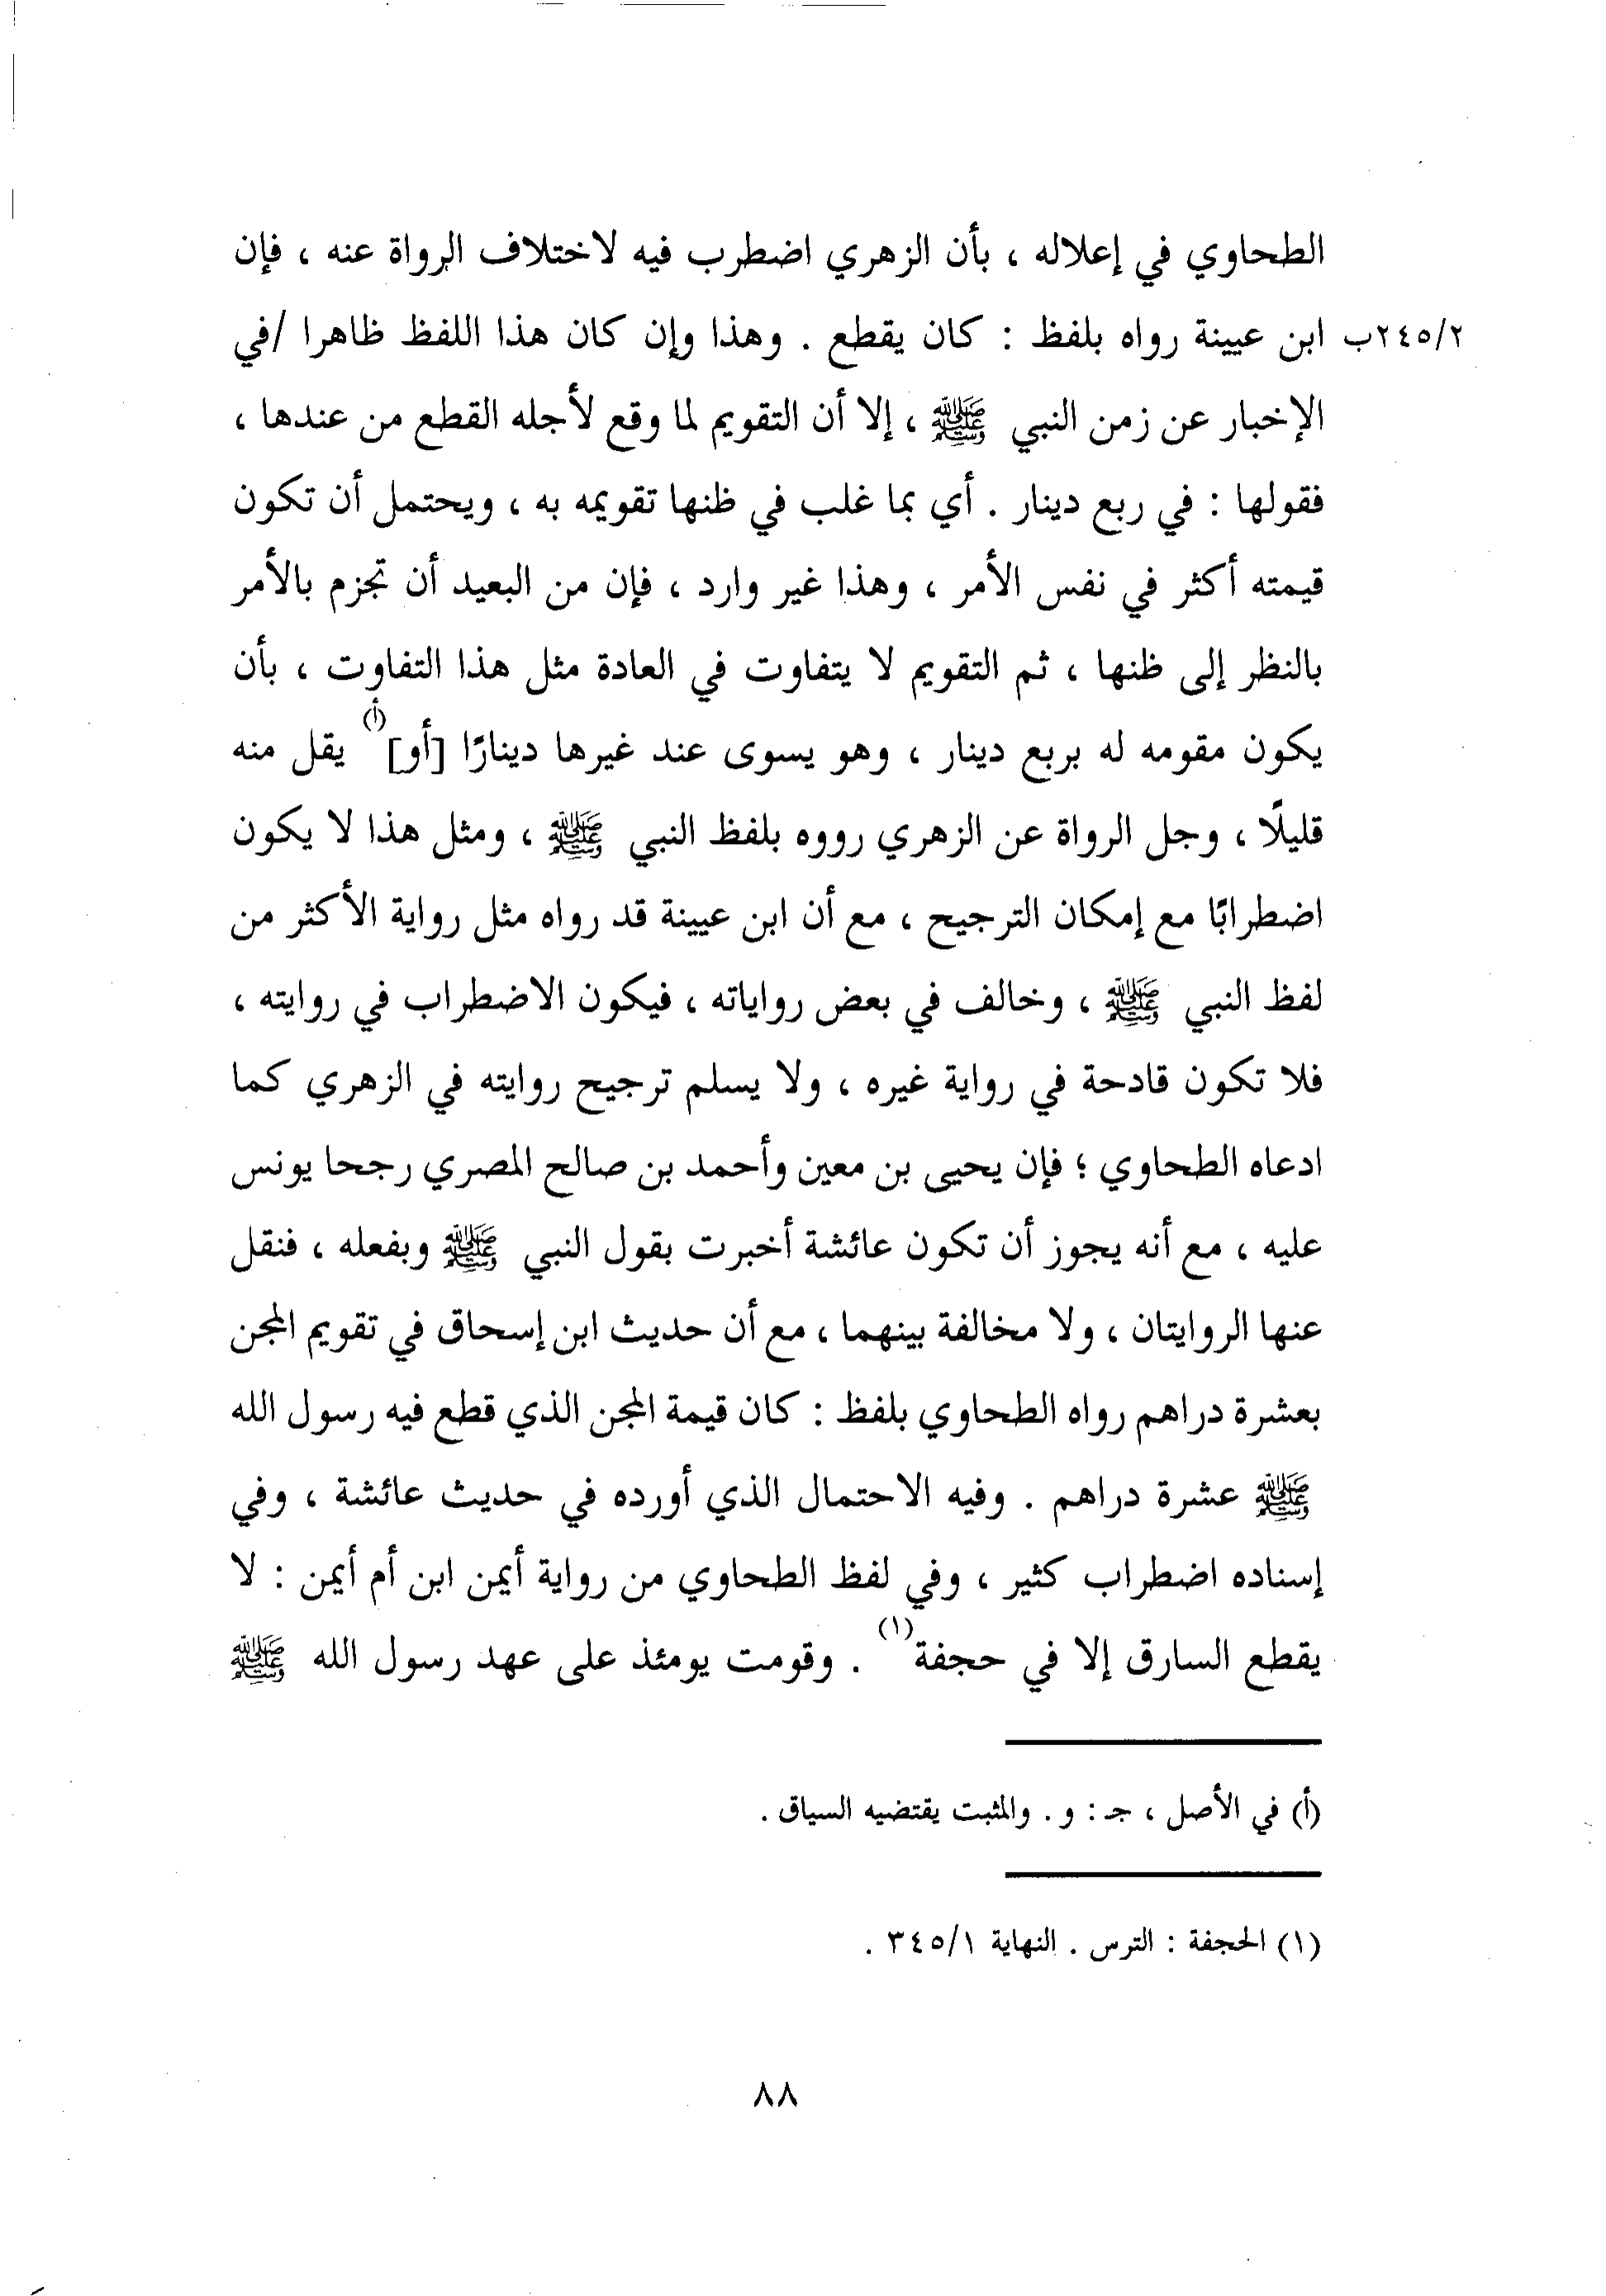 الطحاوي في إعلاله ، بأن الزهري اضطرب فيه لاختلاف الرواة عنه ، فإن
٢٤٥/٢ب ابن عيينة رواه بلفظ : كان يقطع . وهذا وإن كان هذا اللفظ ظاهرا /في
الإخبار عن زمن النبي ﷺ ، إلا أن التقويم لما وقع لأجله القطع من عندها ،
فقولها : في ربع دينار . أي بما غلب في ظنها تقويمه به ، ويحتمل أن تكون
قيمته أكثر في نفس الأمر ، وهذا غير وارد ، فإن من البعيد أن تجزم بالأمر
بالنظر إلى ظنها ، ثم التقويم لا يتفاوت في العادة مثل هذا التفاوت ، بأن
يكون مقومه له بربع دينار ، وهو يسوى عند غيرها دينارًا [أو](أ) يقل منه
قليلًا ، وجل الرواة عن الزهري رووه بلفظ النبي ﷺ ، ومثل هذا لا يكون
اضطرابًا مع إمكان الترجيح ، مع أن ابن عيينة قد رواه مثل رواية الأكثر من
لفظ النبي ﷺ ، وخالف في بعض رواياته ، فيكون الاضطراب في روايته ،
فلا تكون قادحة في رواية غيره ، ولا يسلم ترجيح روايته في الزهري كما
ادعاه الطحاوي ؛ فإن يحيى بن معين وأحمد بن صالح المصري رجحا يونس
عليه ، مع أنه يجوز أن تكون عائشة أخبرت بقول النبي ﷺ وبفعله ، فنقل
عنها الروايتان ، ولا مخالفة بينهما ، مع أن حديث ابن إسحاق في تقويم المجن
بعشرة دراهم رواه الطحاوي بلفظ : كان قيمة المجن الذي قطع فيه رسول الله
ﷺ عشرة دراهم . وفيه الاحتمال الذي أورده في حديث عائشة ، وفي
إسناده اضطراب كثير ، وفي لفظ الطحاوي من رواية أيمن ابن أم أيمن : لا
يقطع السارق إلا في حجفة(١) . وقومت يومئذ على عهد رسول الله ﷺ
(أ) في الأصل ، جـ : و . والمثبت يقتضيه السياق .
(١) الحجفة : الترس . النهاية ٣٤٥/١ .
٨٨